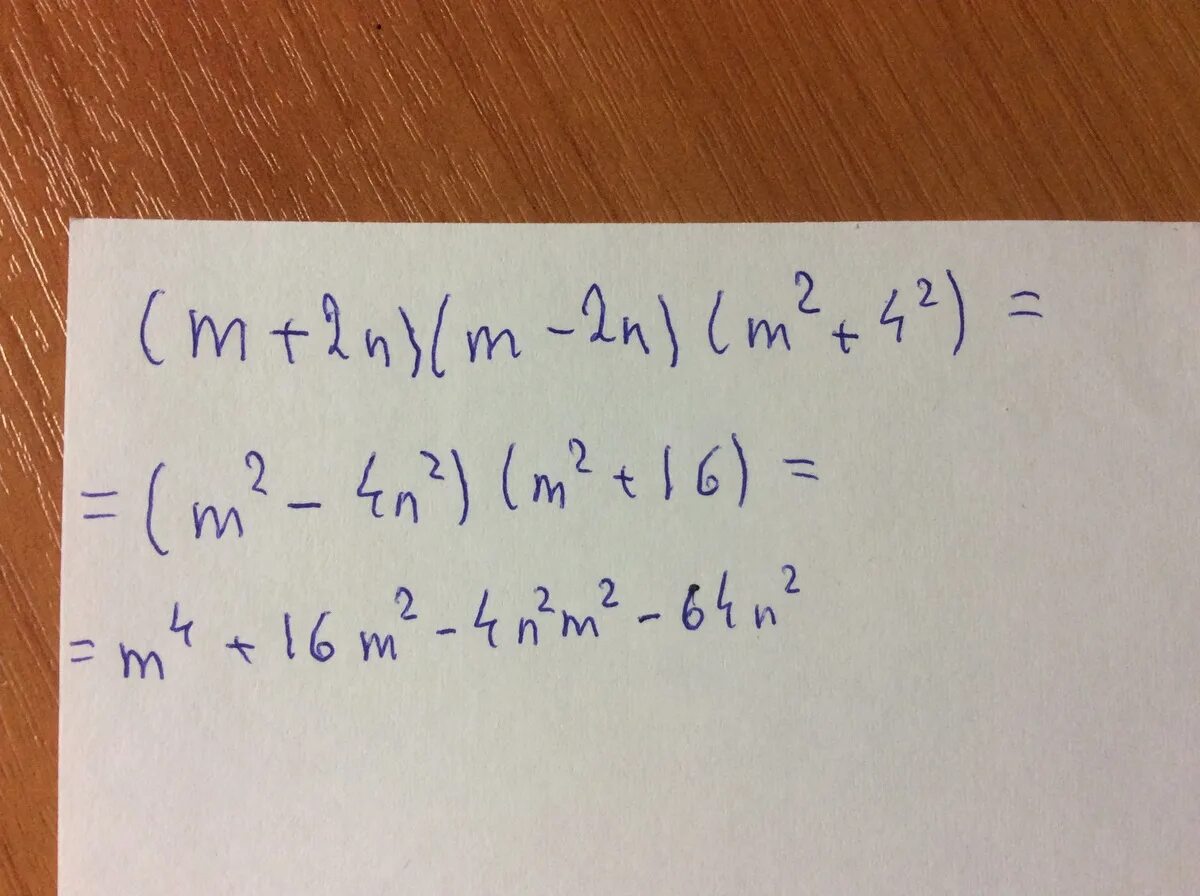 (m + 2n)(m - 2n)(m² + 4²) =
= (m² - 4n²)(m² + 16) =
= m⁴ + 16m² - 4n²m² - 64n²